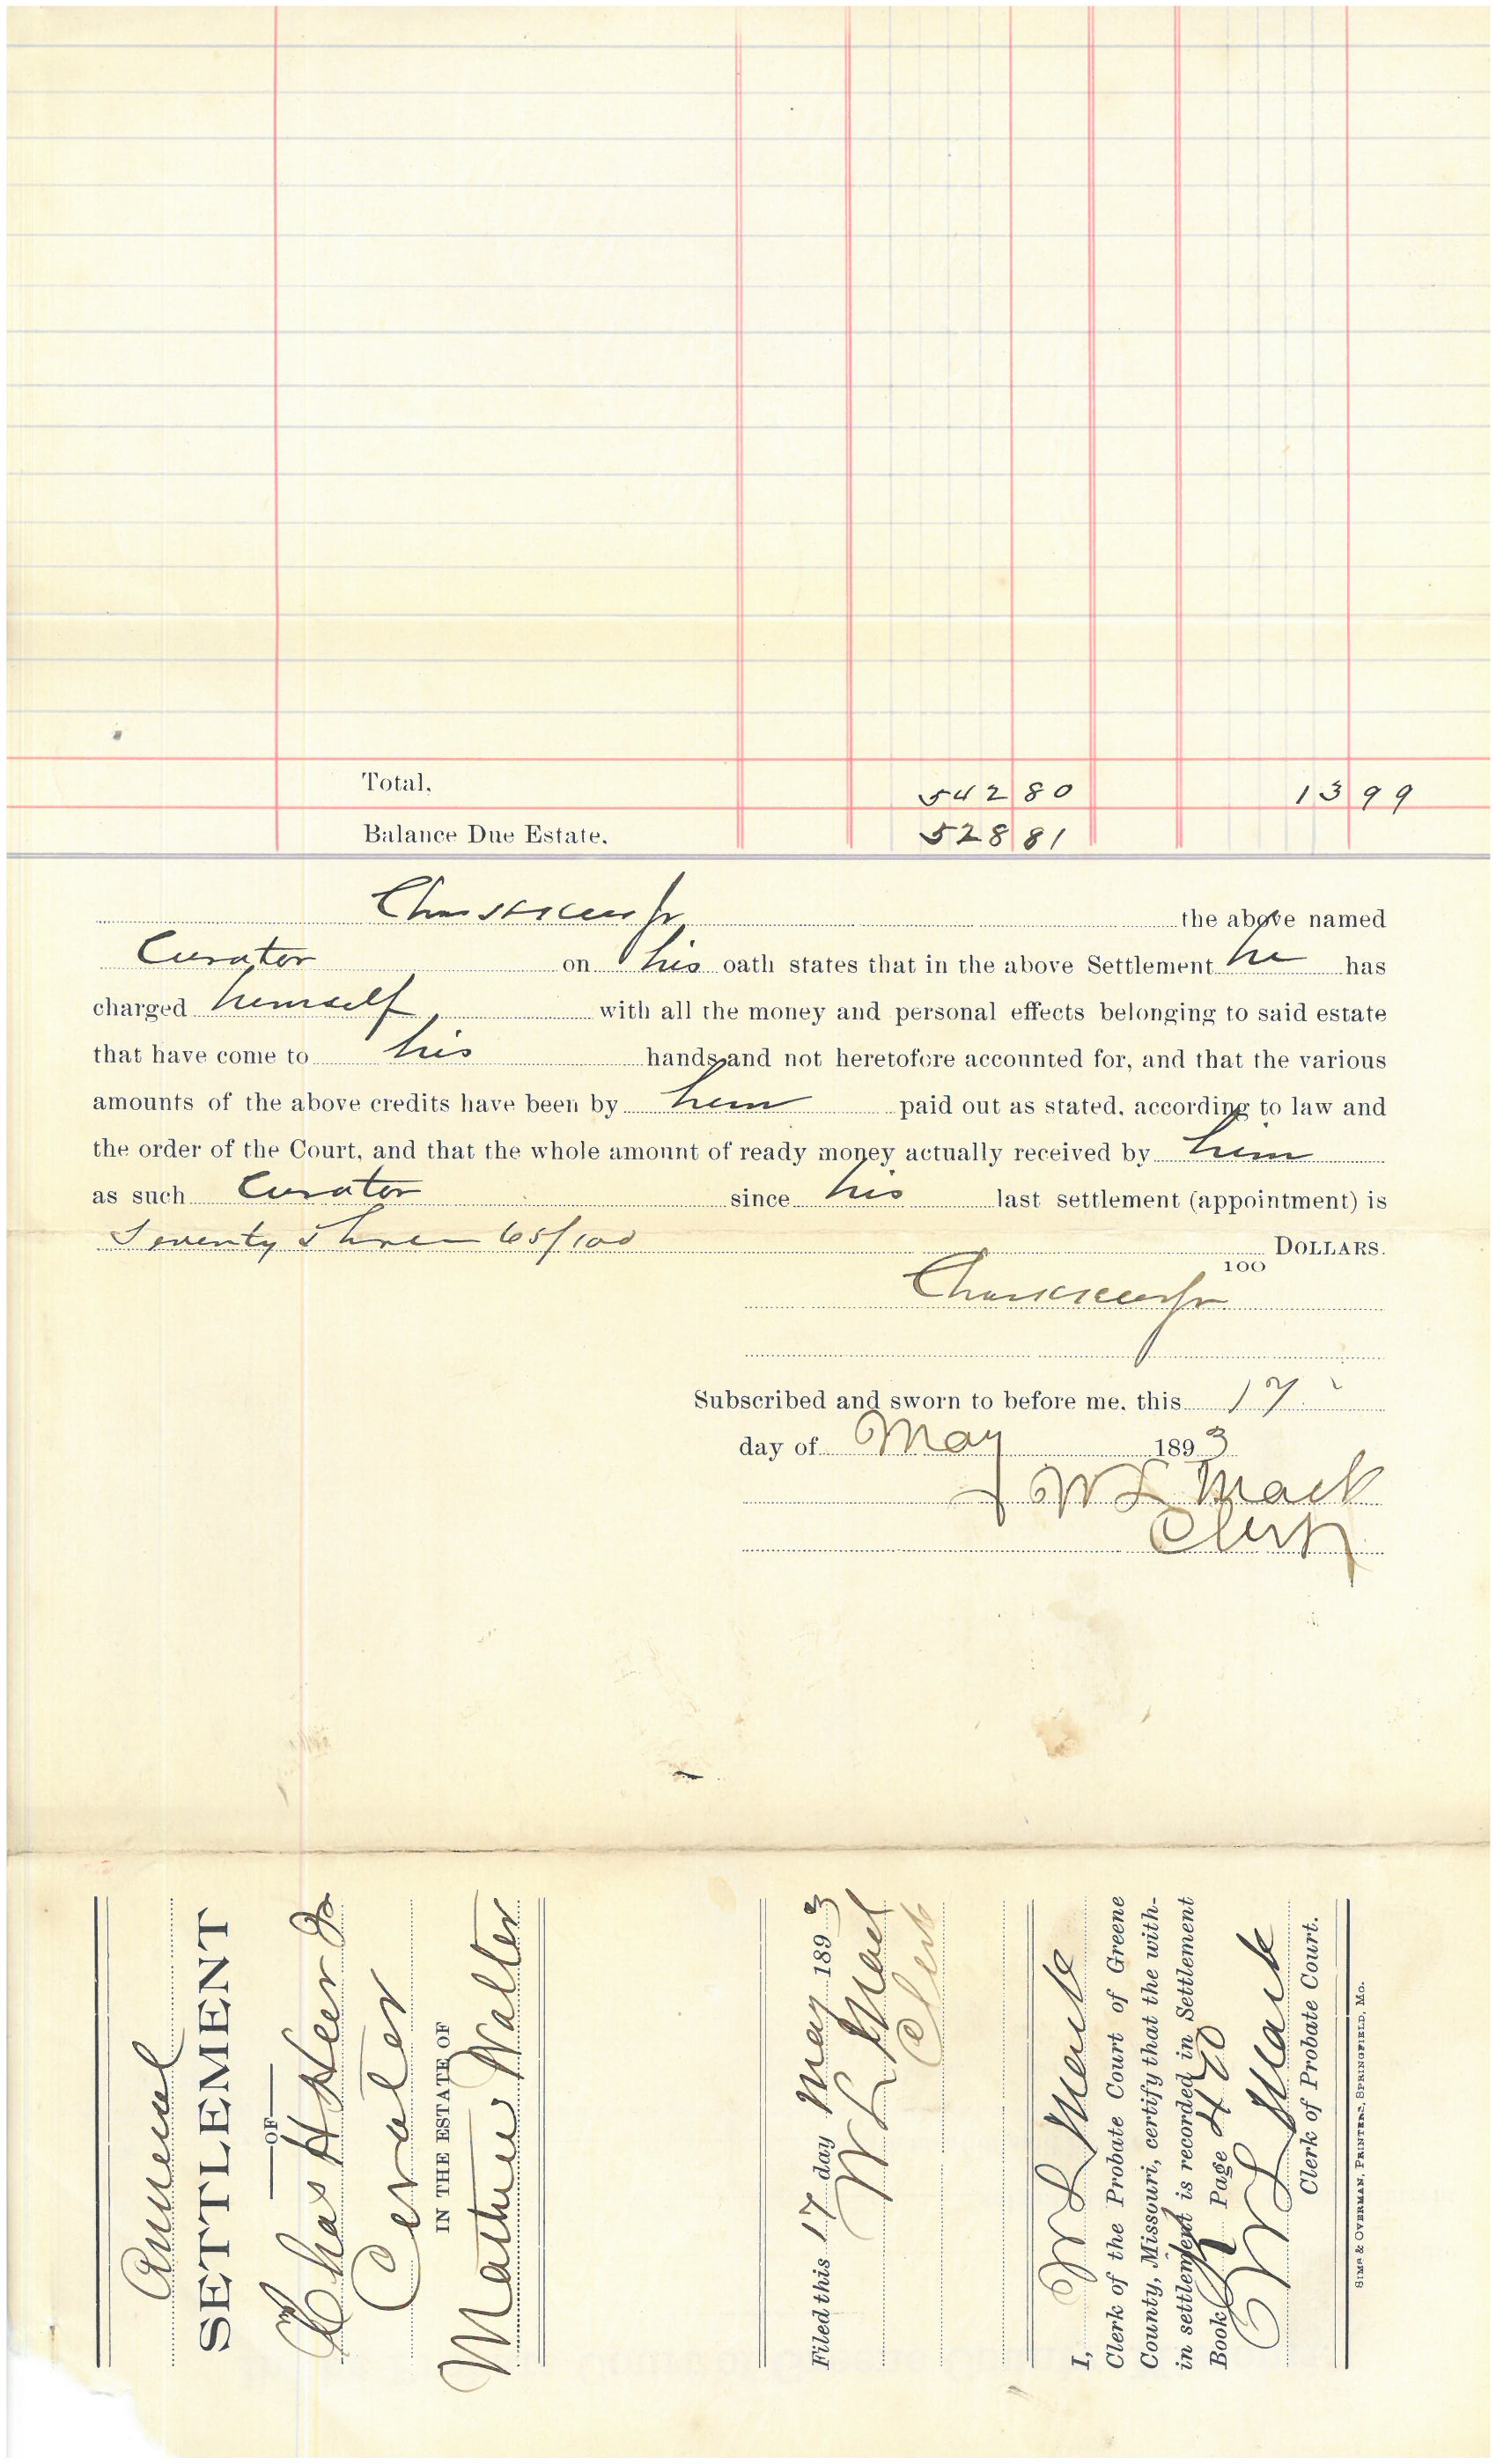 Total. 542 80 13 99
Balance Due Estate. 528 81
Chas H Heer Jr the above named
Curator on his oath states that in the above Settlement he has
charged himself with all the money and personal effects belonging to said estate
that have come to his hands and not heretofore accounted for, and that the various
amounts of the above credits have been by him paid out as stated, according to law and
the order of the Court, and that the whole amount of ready money actually received by him
as such Curator since his last settlement (appointment) is
Seventy Three 65/100 DOLLARS.
100
Chas H Heer Jr
Subscribed and sworn to before me, this 17
day of May 1893
W L Mack
Clerk
Annual
SETTLEMENT
OF
Chas H Heer Jr
Curator
IN THE ESTATE OF
Walter
Filed this 17 day May 1893
W L Mack
Clerk
I, W L Mack
Clerk of the Probate Court of Greene
County, Missouri, certify that the with-
in settlement is recorded in Settlement
Book Page 420
W L Mack
Clerk of Probate Court.
SIMS & OVERMAN, PRINTERS, SPRINGFIELD, MO.